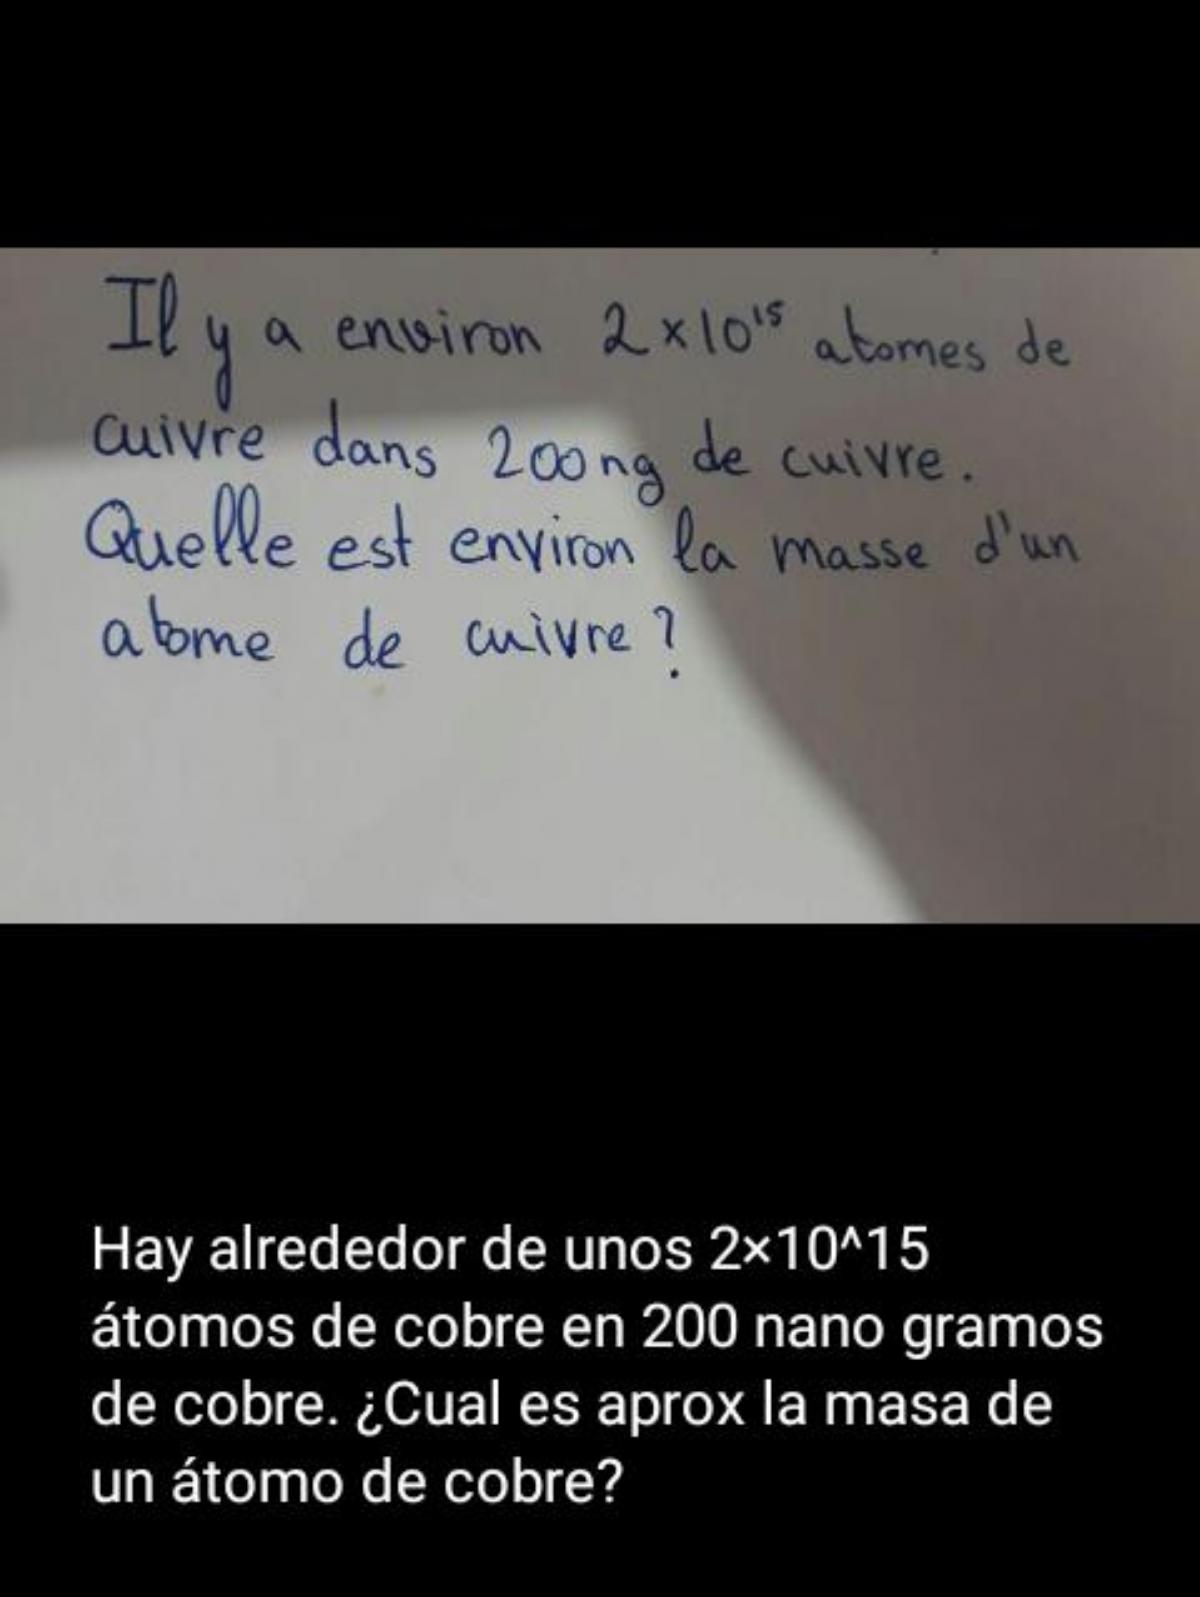 Il y a environ 2×10¹⁵ atomes de
cuivre dans 200ng de cuivre.
Quelle est environ la masse d'un
atome de cuivre ?
Hay alrededor de unos 2×10^15
átomos de cobre en 200 nano gramos
de cobre. ¿Cual es aprox la masa de
un átomo de cobre?